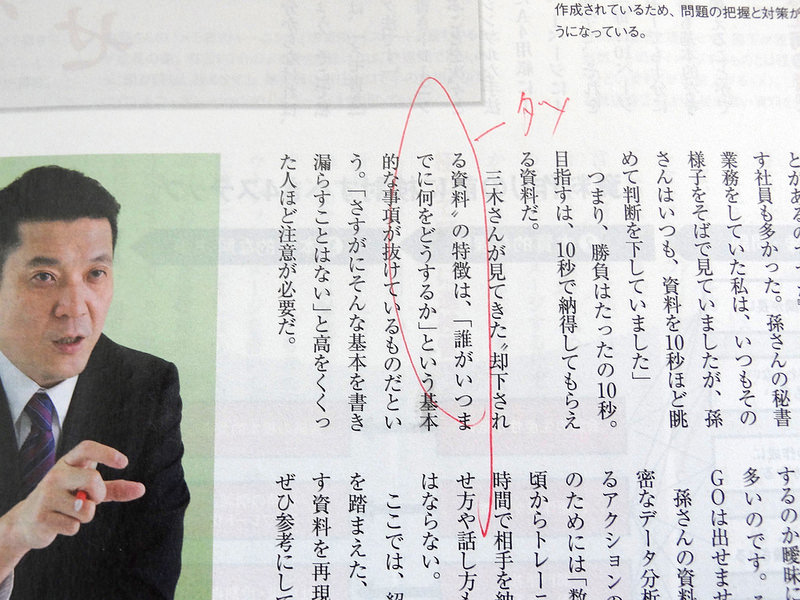 作成されているため、問題の把握と対策が
うになっている。
す社員も多かった。孫さんの秘書
業務をしていた私は、いつもその
様子をそばで見ていましたが、孫
さんはいつも、資料を10秒ほど眺
めて判断を下していました」
つまり、勝負はたったの10秒。
目指すは、10秒で納得してもらえ
る資料だ。
三木さんが見てきた〝却下され
る資料〟の特徴は、「誰がいつま
でに何をどうするか」という基本
的な事項が抜けているものだとい
う。「さすがにそんな基本を書き
漏らすことはない」と高をくくっ
た人ほど注意が必要だ。
するのか曖昧に
多いのです。
GOは出せませ
孫さんの資料
密なデータ分析
るアクションの
のためには「数
頃からトレーニ
時間で相手を納
せ方や話し方も
はならない。
ここでは、
を踏まえた、
す資料を再現
ぜひ参考にして